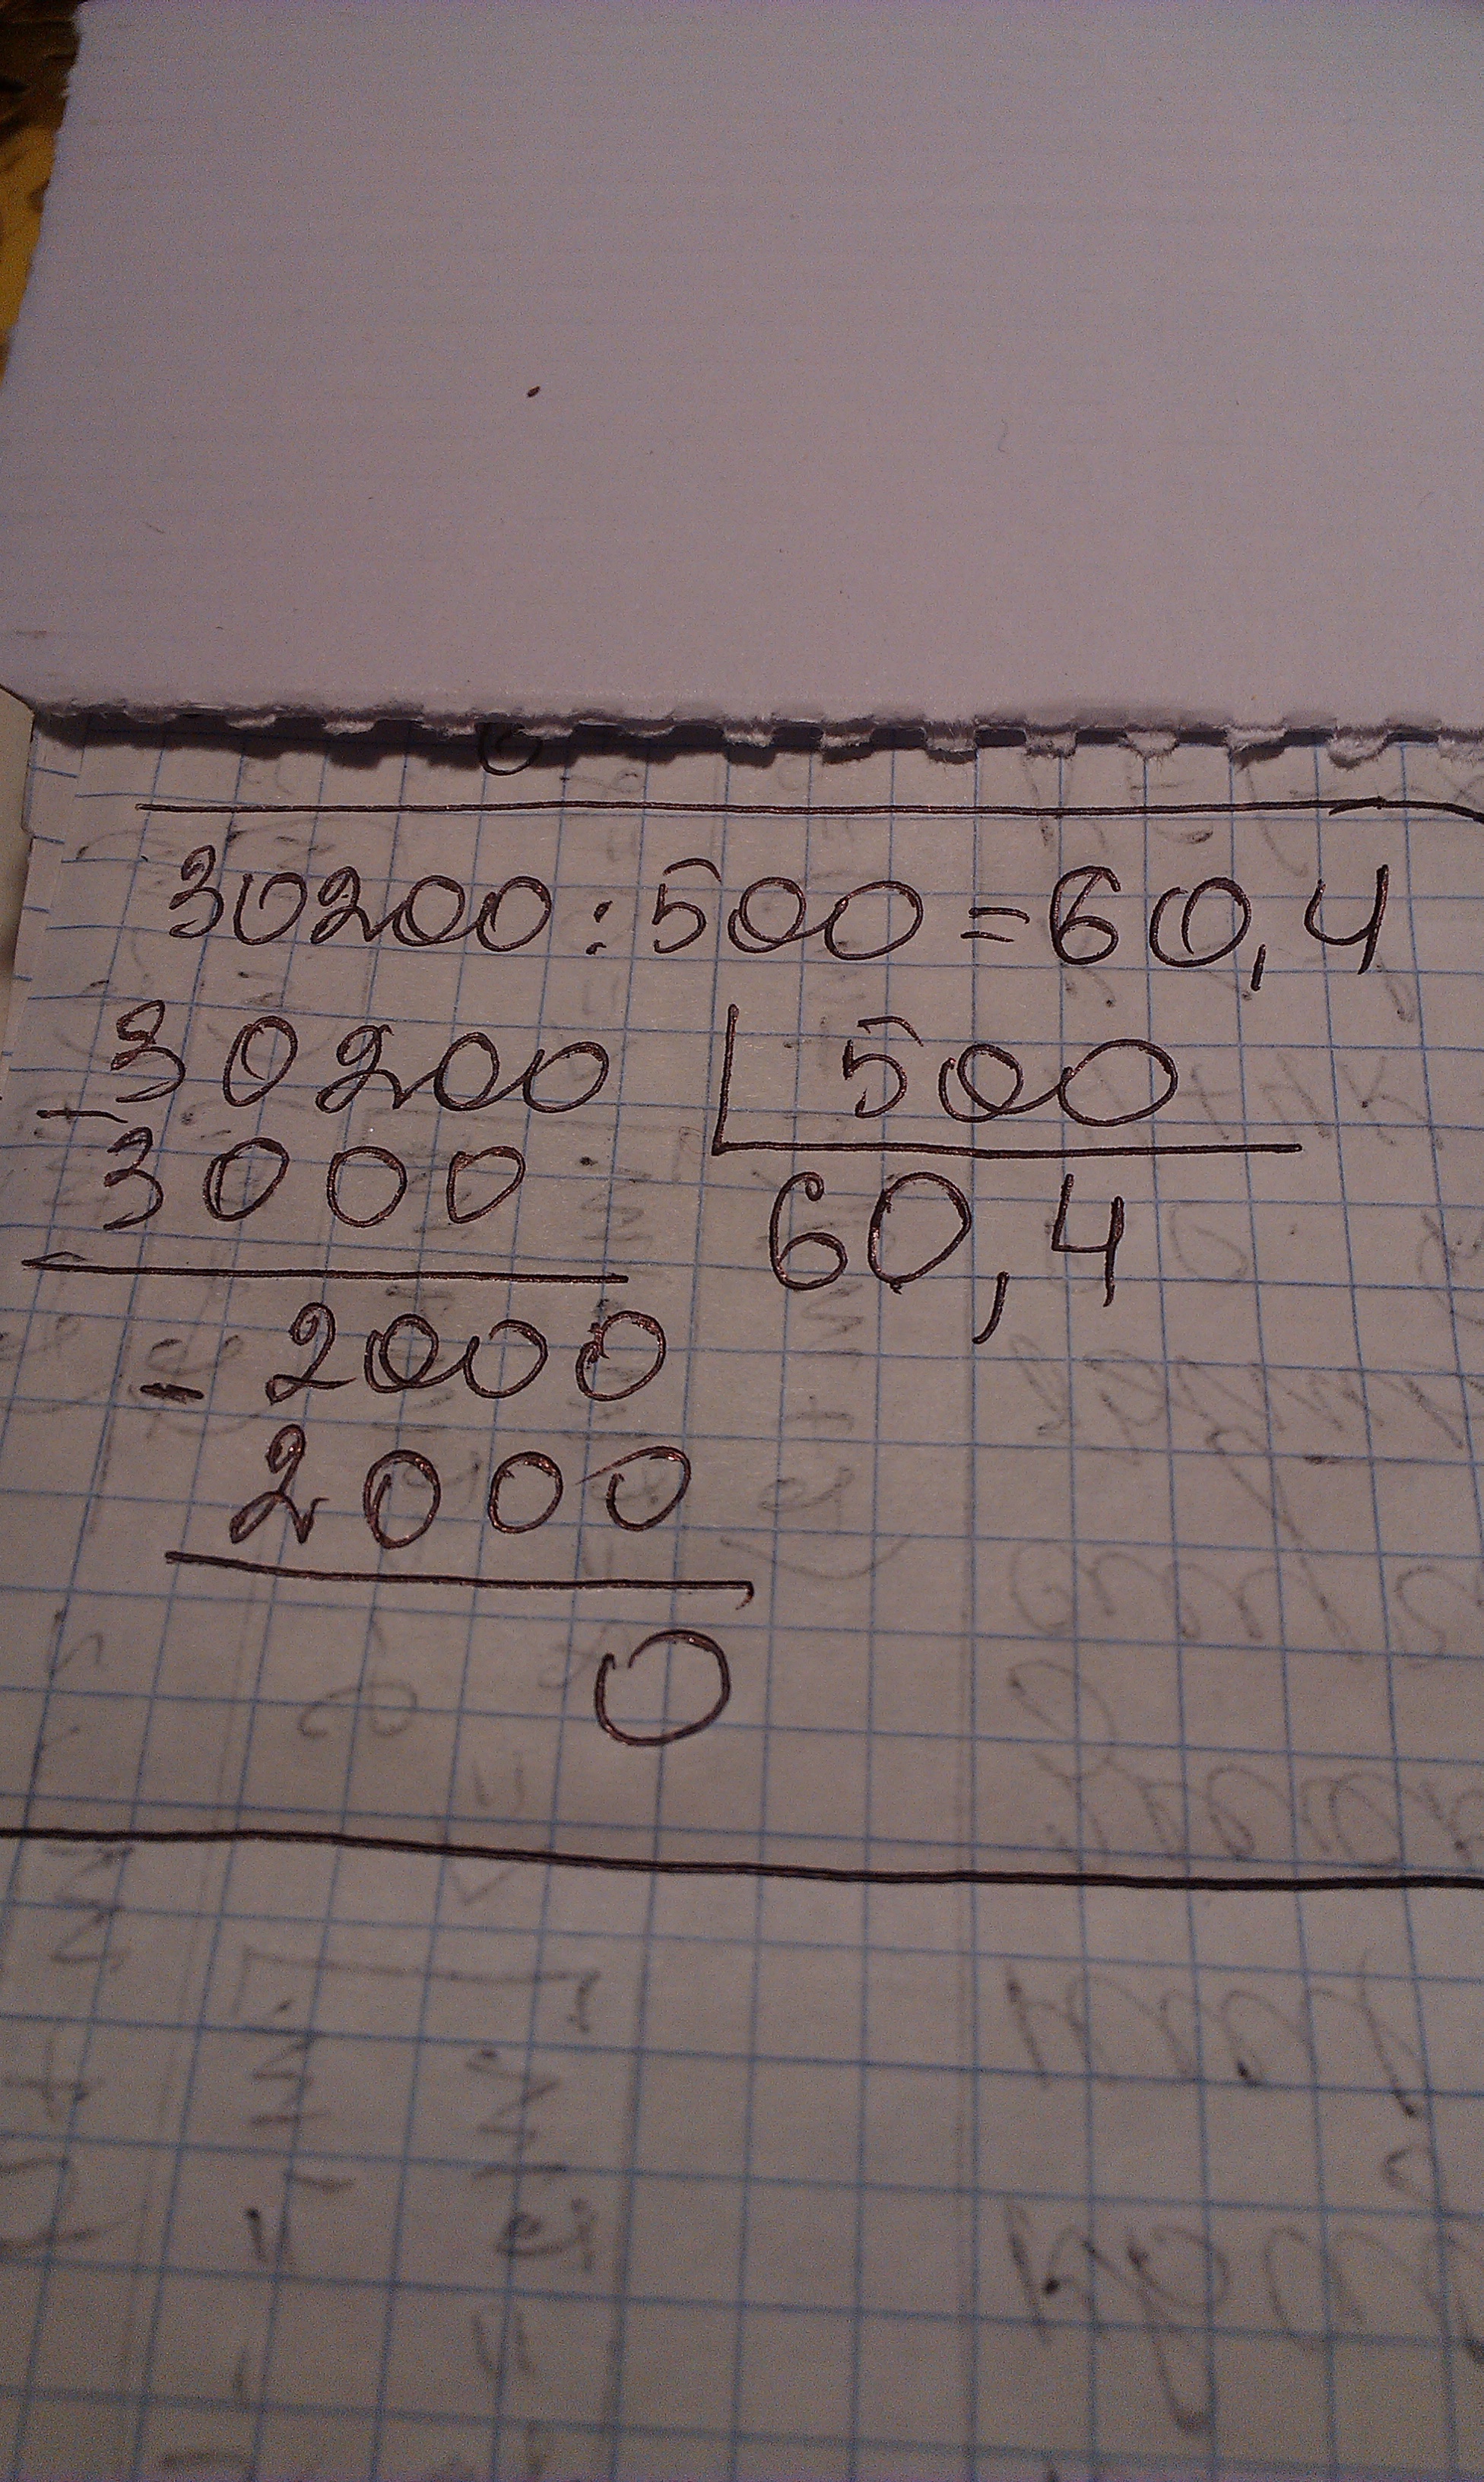 30200:500=60,4
-30200 | 500
3000 60,4
-2000
2000
0